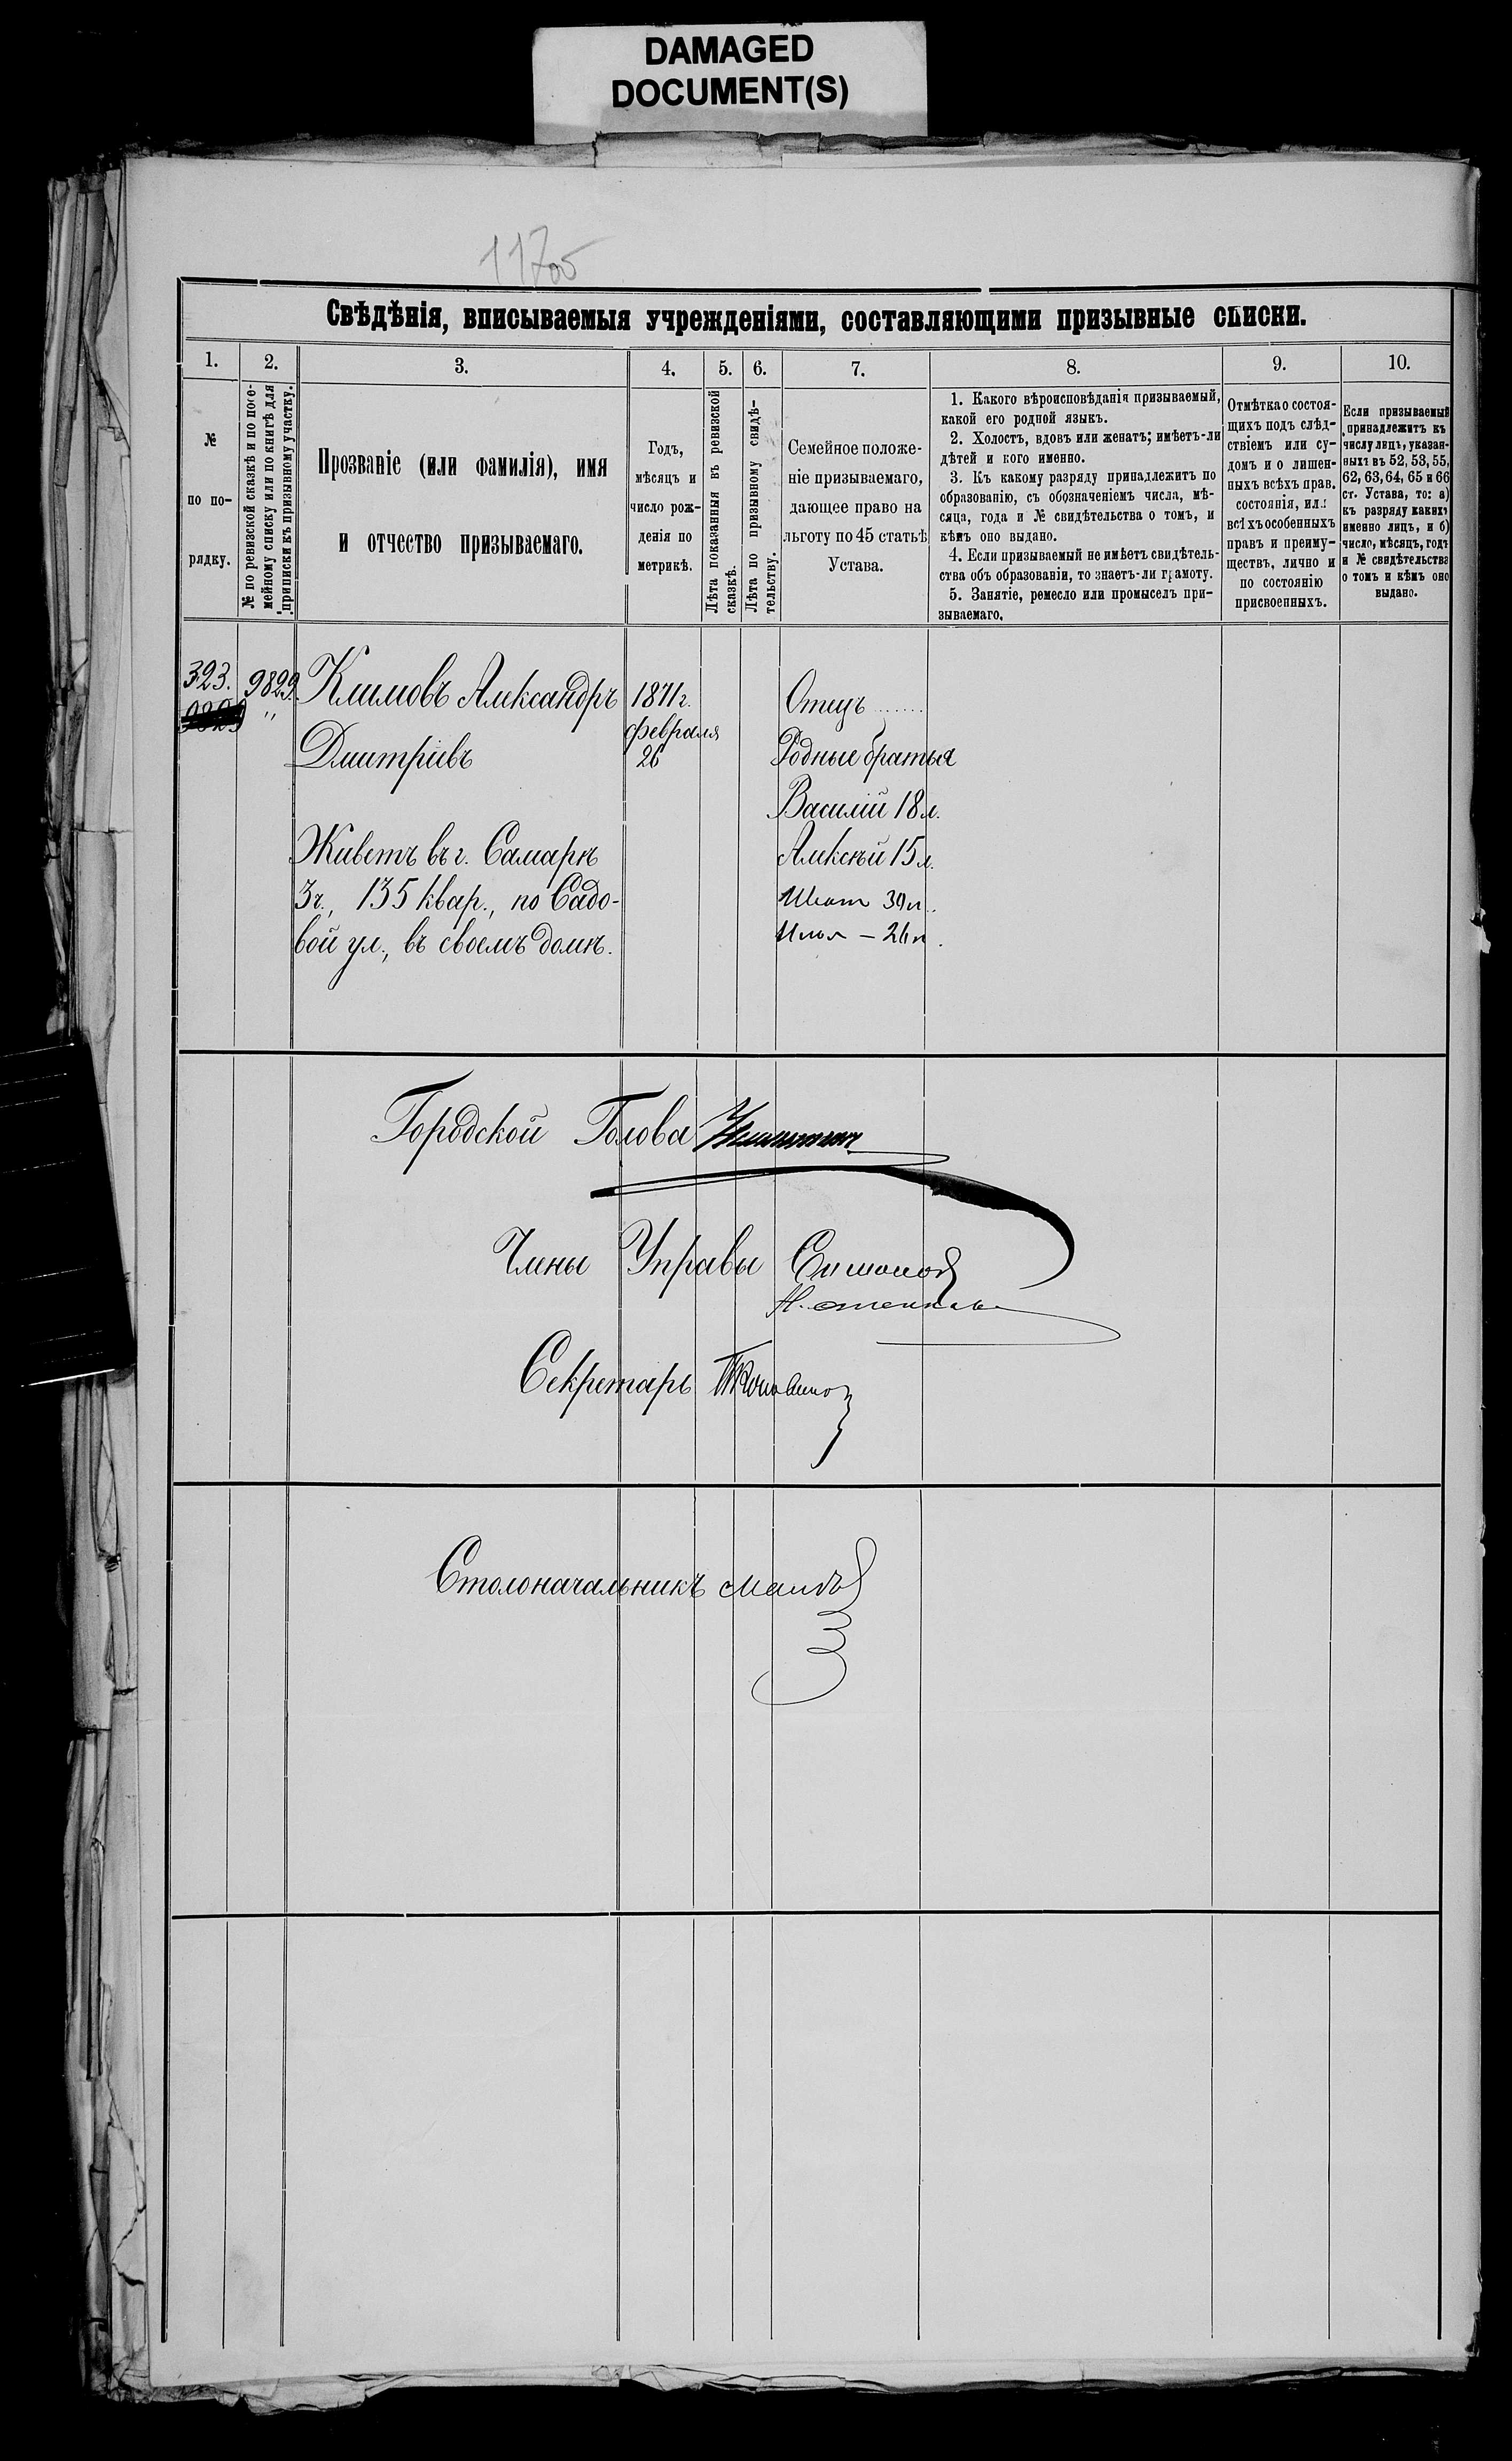 DAMAGED
DOCUMENT(S)
Свѣдѣнія, вписываемыя учрежденіями, составляющими призывные списки.
1.
2.
3.
4.
5.
6.
7.
8.
9.
10.
№
по по-
рядку.
№ по ревизской сказкѣ и по посе-
мейному списку или по книгѣ для
приписки къ призывному участку.
Прозваніе (или фамилія), имя
и отчество призываемаго.
Годъ,
мѣсяцъ и
число рож-
денія по
метрикѣ.
Лѣта показанныя въ ревизской
сказкѣ.
Лѣта по призывному свидѣ-
тельству.
Семейное положе-
ніе призываемаго,
дающее право на
льготу по 45 статьѣ
Устава.
1. Какого вѣроисповѣданія призываемый,
какой его родной языкъ.
2. Холостъ, вдовъ или женатъ; имѣетъ-ли
дѣтей и кого именно.
3. Къ какому разряду принадлежитъ по
образованію, съ обозначеніемъ числа, мѣ-
сяца, года и № свидѣтельства о томъ, и
кѣмъ оно выдано.
4. Если призываемый не имѣетъ свидѣтель-
ства объ образованіи, то знаетъ-ли грамоту.
5. Занятіе, ремесло или промыселъ при-
зываемаго.
Отмѣтка о состоя-
щихъ подъ слѣд-
ствіемъ или су-
домъ и о лишен-
ныхъ всѣхъ прав.
состоянія, или
всѣхъ особенныхъ
правъ и преиму-
ществъ, лично и
по состоянію
присвоенныхъ.
Если призываемый
принадлежитъ къ
числу лицъ, указан-
ныхъ въ 52, 53, 55,
62, 63, 64, 65 и 66
ст. Устава, то: а)
къ разряду какихъ
именно лицъ, и б)
число, мѣсяцъ, годъ
и № свидѣтельства
о томъ и кѣмъ оно
выдано.
323.
9829
9829.
"
Климовъ Александръ
Дмитріевъ
Живетъ въ г. Самарѣ
3 ч., 135 квар., по Садо-
вой ул., въ своемъ домѣ.
1871 г.
февраля
26
Отецъ .......
Родные братья
Василій 18 л.
Алексѣй 15 л.
Илья – 26 л.
Городской Голова
Члены Управы
Секретарь
Столоначальникъ